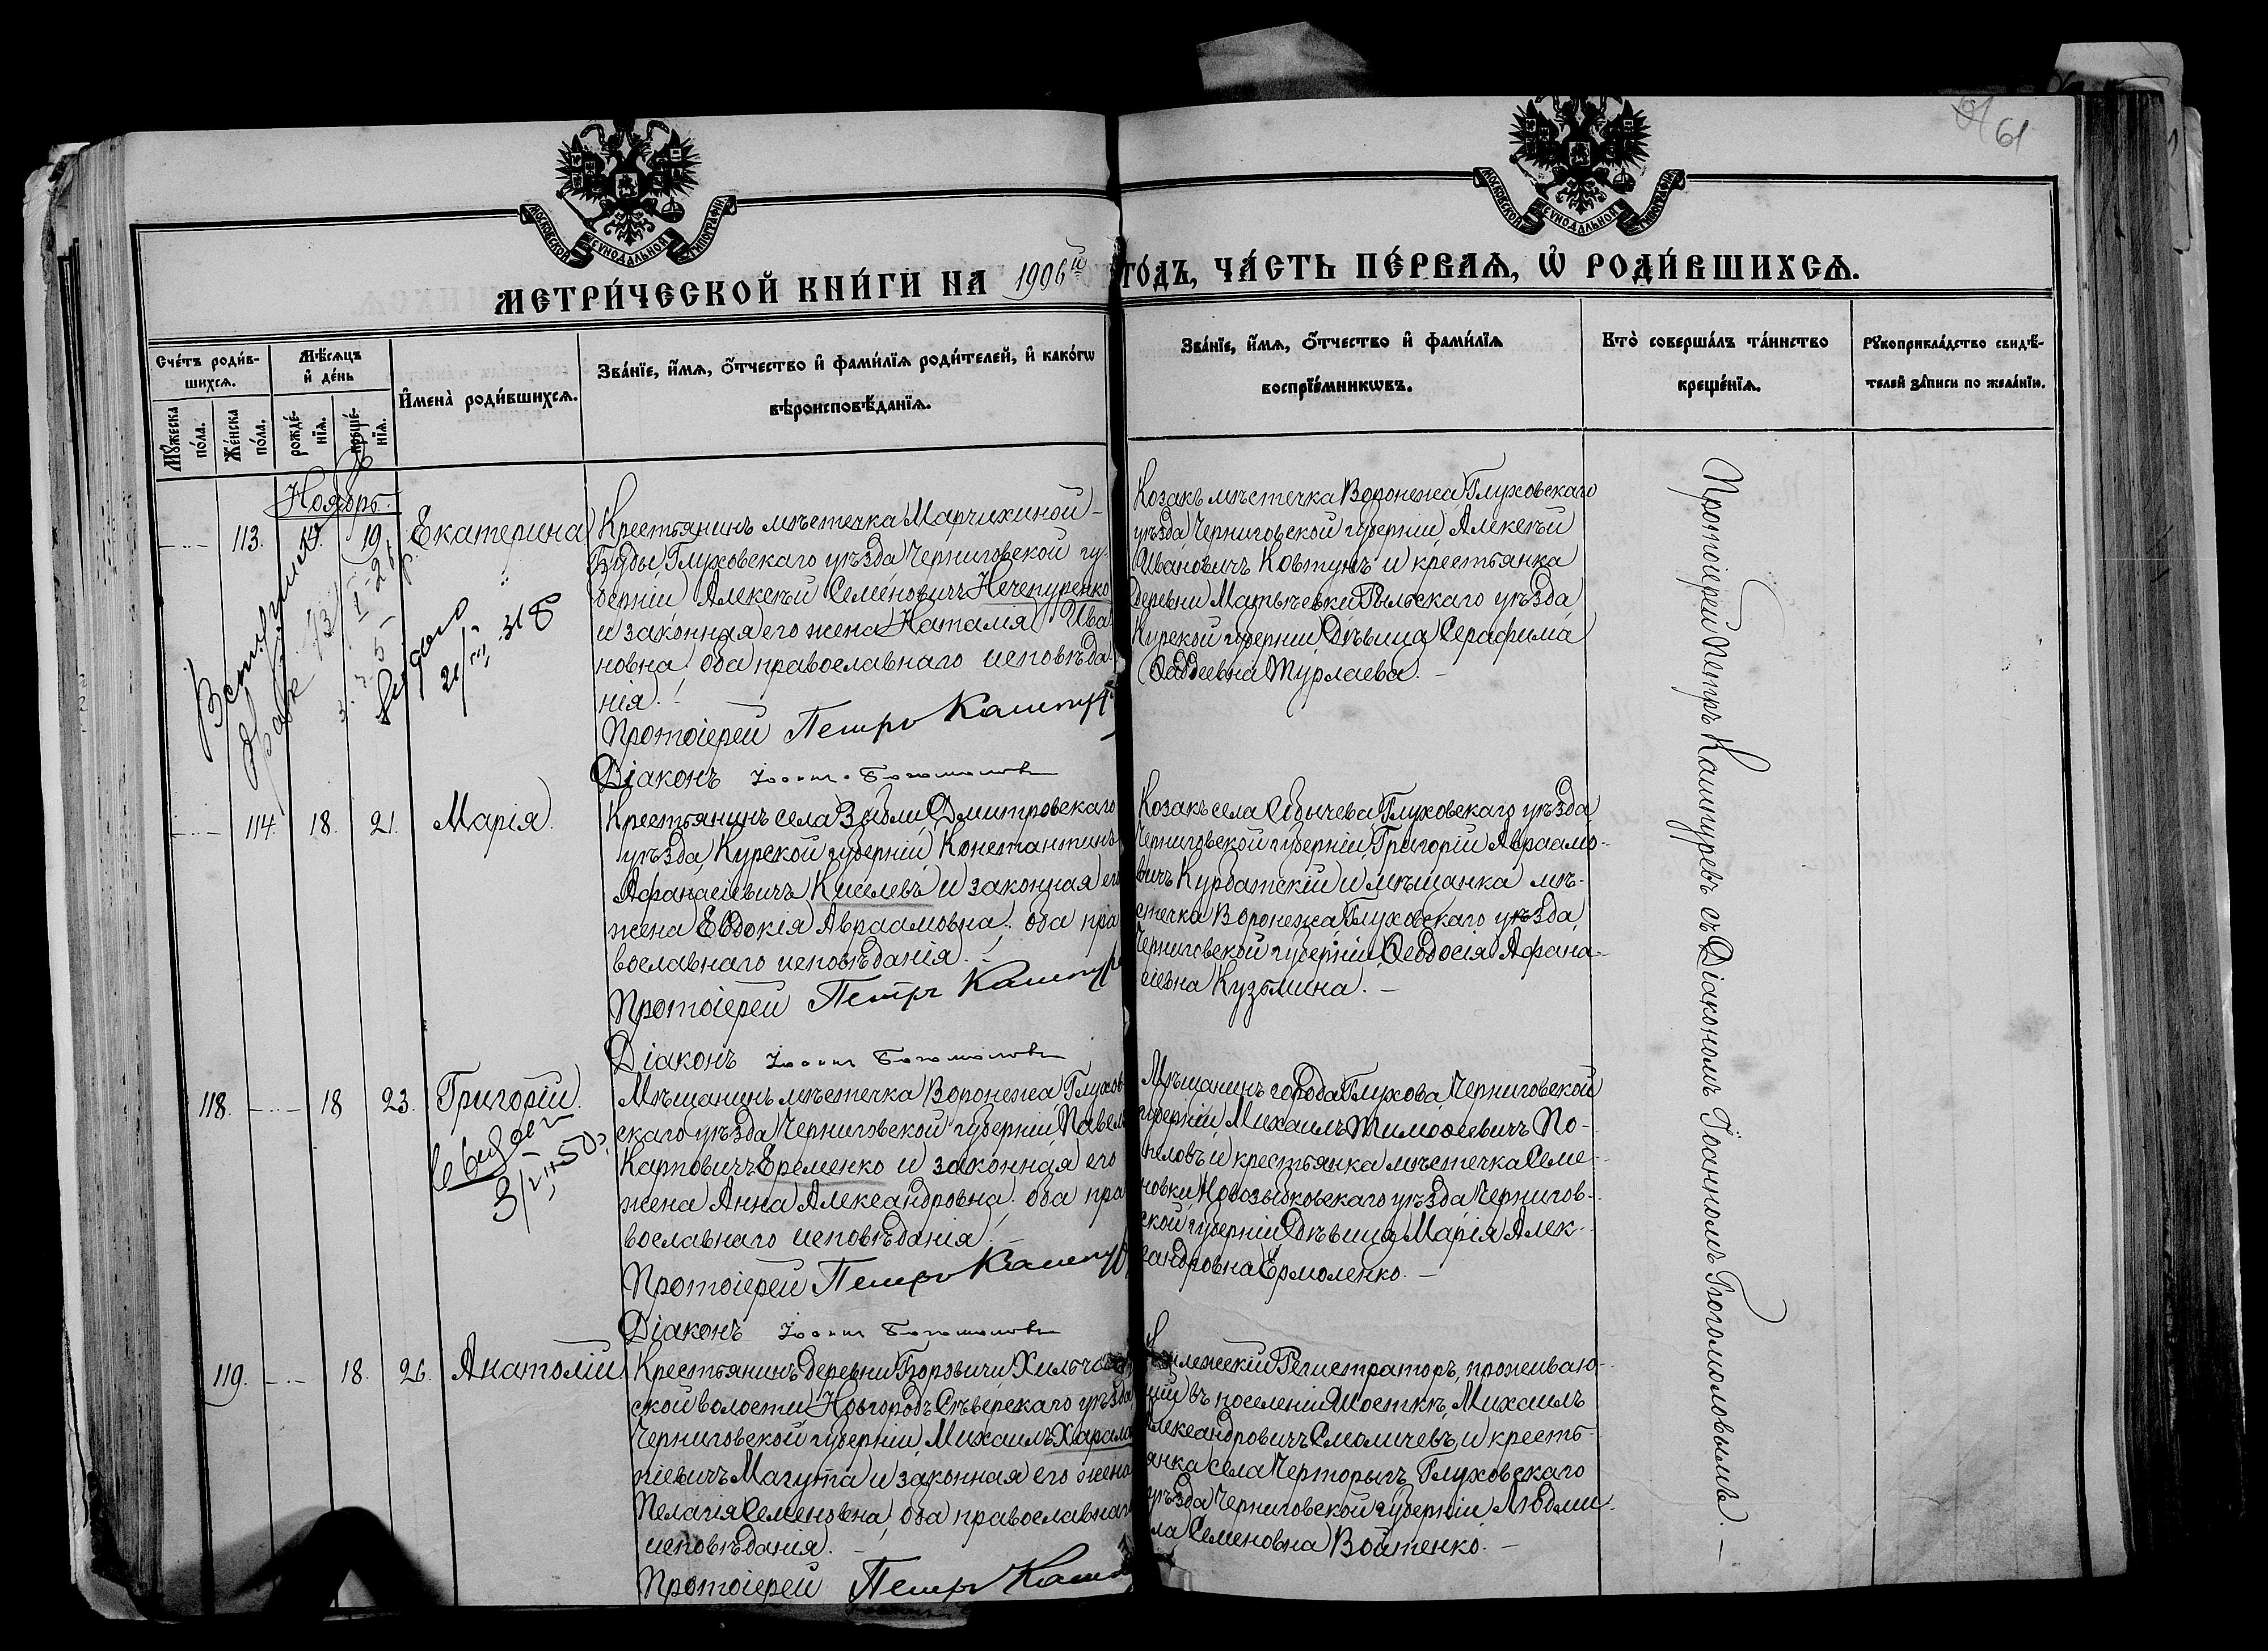 91 61
МОСКОВСКОЙ СУНОДАЛЬНОЙ ТИПОГРАФІИ
МОСКОВСКОЙ СУНОДАЛЬНОЙ ТИПОГРАФІИ
МЕТРИ́ЧЕСКОЙ КНИ́ГИ НА 1906й ГО́ДЪ, ЧА́СТЬ ПЕ́РВАѦ, Ѡ҆ РОДИ́ВШИХСѦ.
Сче́тъ роди́в-
шихсѧ.
Мꙋ́жеска
по́ла.
Же́нска
по́ла.
Мѣ́сѧцъ
и҆ де́нь
рожде́-
нїѧ.
креще́-
нїѧ.
И҆мена̀ роди́вшихсѧ.
Зва́нїе, и҆́мѧ, ѻ҆́тчество и҆ фами́лїѧ роди́телей, и҆ како́гѡ
вѣроисповѣ́данїѧ.
Зва́нїе, и҆́мѧ, ѻ҆́тчество и҆ фами́лїѧ
воспрїе́мникѡвъ.
Кто̀ соверша́лъ та́инство
креще́нїѧ.
Рꙋкоприкла́дство свидѣ́-
телей за́писи по жела́нїю.
Ноябрь.
113. 19. Екатерина
Крестьянинъ мѣстечка Марчихиной-
Буды, Глуховскаго уѣзда Черниговской гу-
берніи Алексѣй Семеновичъ Нечепуренко
и законная его жена Наталія Ива
новна, оба православнаго исповѣда
нія.
Протоіерей Петръ Кашпур
Діаконъ Іоаннъ Богомоловъ
Козакъ мѣстечка Воронежа Глуховскаго
уѣзда Черниговской губерніи, Алексѣй
Ивановичъ Ковтунъ и крестьянка
деревни Рыльскаго уѣзда
Курской губерніи, дѣвица Серафима
Ѳаддеевна Турлаева. -
114. 18. 21. Марія.
Крестьянинъ села Дмитровскаго
уѣзда, Курской губерніи Константинъ
Афанасіевичъ Киселевъ и законная его
жена Евдокія Авраамовна, оба пра
вославнаго исповѣданія.
Протоіерей Петръ Кашпур
Діаконъ Іоаннъ Богомоловъ
Козакъ села Собычева, Глуховскаго уѣзда
Черниговской губерніи, Григорій Авраамо-
вичъ Курбатскій и мѣщанка мѣ-
стечка Воронежа, Глуховскаго уѣзда
Черниговской губерніи, Ѳеодосія Афана-
сіевна Кузьмина. -
118. 18 23. Григорій.
Мѣщанинъ мѣстечка Воронежа Глухов
скаго уѣзда, Черниговской губерніи, Павелъ
Карповичъ Еременко и законная его
жена Анна Александровна, оба пра
вославнаго исповѣданія.
Протоіерей Петръ Кашпур
Діаконъ Іоаннъ Богомоловъ
Мѣщанинъ города Глухова, Черниговской
губерніи, Михаилъ Тимоѳеевичъ По-
пеловъ и крестьянка мѣстечка Семе-
новки, Новозыбковскаго уѣзда Чернигов-
ской губерніи дѣвица Марія Алек-
сандровна Ермоленко. -
119. 18. 26. Анатолій
Крестьянинъ деревни Боровичи
ской волости, Новгородъ-Сѣверскаго уѣзда
Черниговской губерніи, Михаилъ Харала
піевичъ Магута и законная его жена
Пелагія Семеновна, оба православнаго
исповѣданія. -
Протоіерей Петръ Кашп
Коллежскій Регистраторъ, проживаю-
щій въ поселеніи Шосткѣ, Михаилъ
Александровичъ Смоличевъ, и кресть-
янка села Чорторыгъ, Глуховскаго
уѣзда Черниговской губерніи Людми-
ла Семеновна Войтенко. -
Протоіерей Петръ Кашпуревъ съ Діакономъ Іоанномъ Богомоловымъ. -